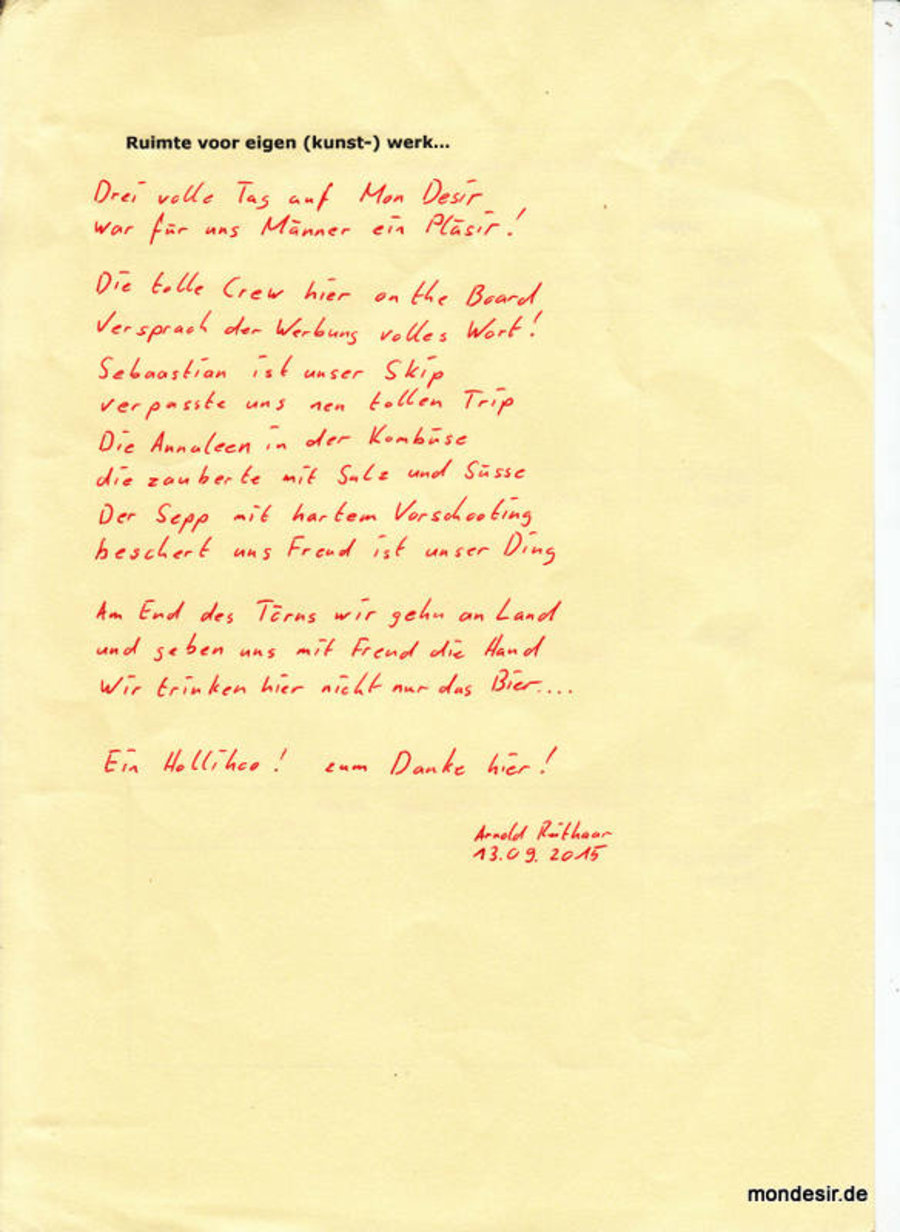 Ruimte voor eigen (kunst-) werk...
Drei volle Tag auf Mon Desir
war für uns Männer ein Pläsir!
Die tolle Crew hier on the Board
Versprach der Werbung volles Wort!
Sebaastian ist unser Skip
verpasste uns nen tollen Trip
Die Annaleen in der Kombüse
die zauberte mit Salz und Süsse
Der Sepp mit hartem Vorschooting
beschert uns Freud ist unser Ding
Am End des Törns wir gehn an Land
und geben uns mit Freud die Hand
Wir trinken hier nicht nur das Bier....
Ein Hollihoo! zum Danke hier!
Arnold
13.09.2015
mondesir.de